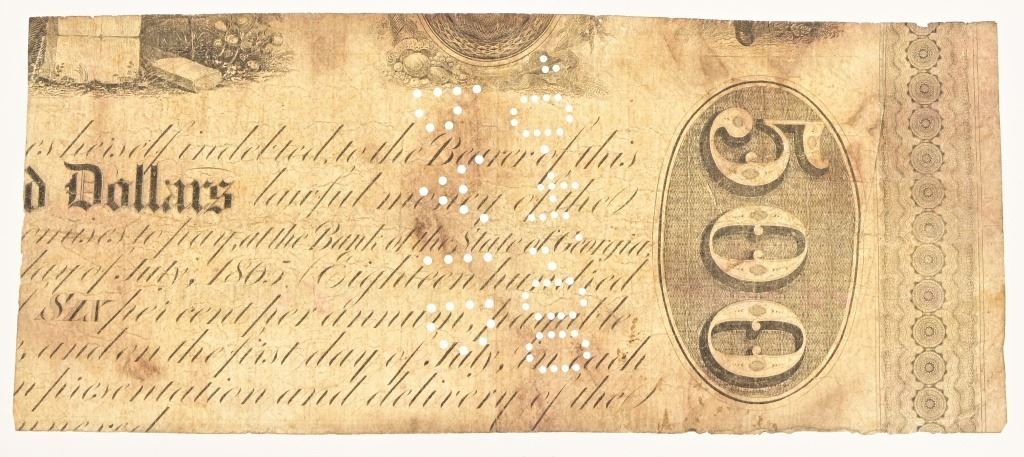 es herself indebted, to the Bearer of this
d Dollars lawful money of the
omises to pay, at the Bank of the State of Georgia,
day of July, 1865, Eighteen hundred
SIX per cent per annum, payable
, and on the first day of July, in each
n presentation and delivery of the
500